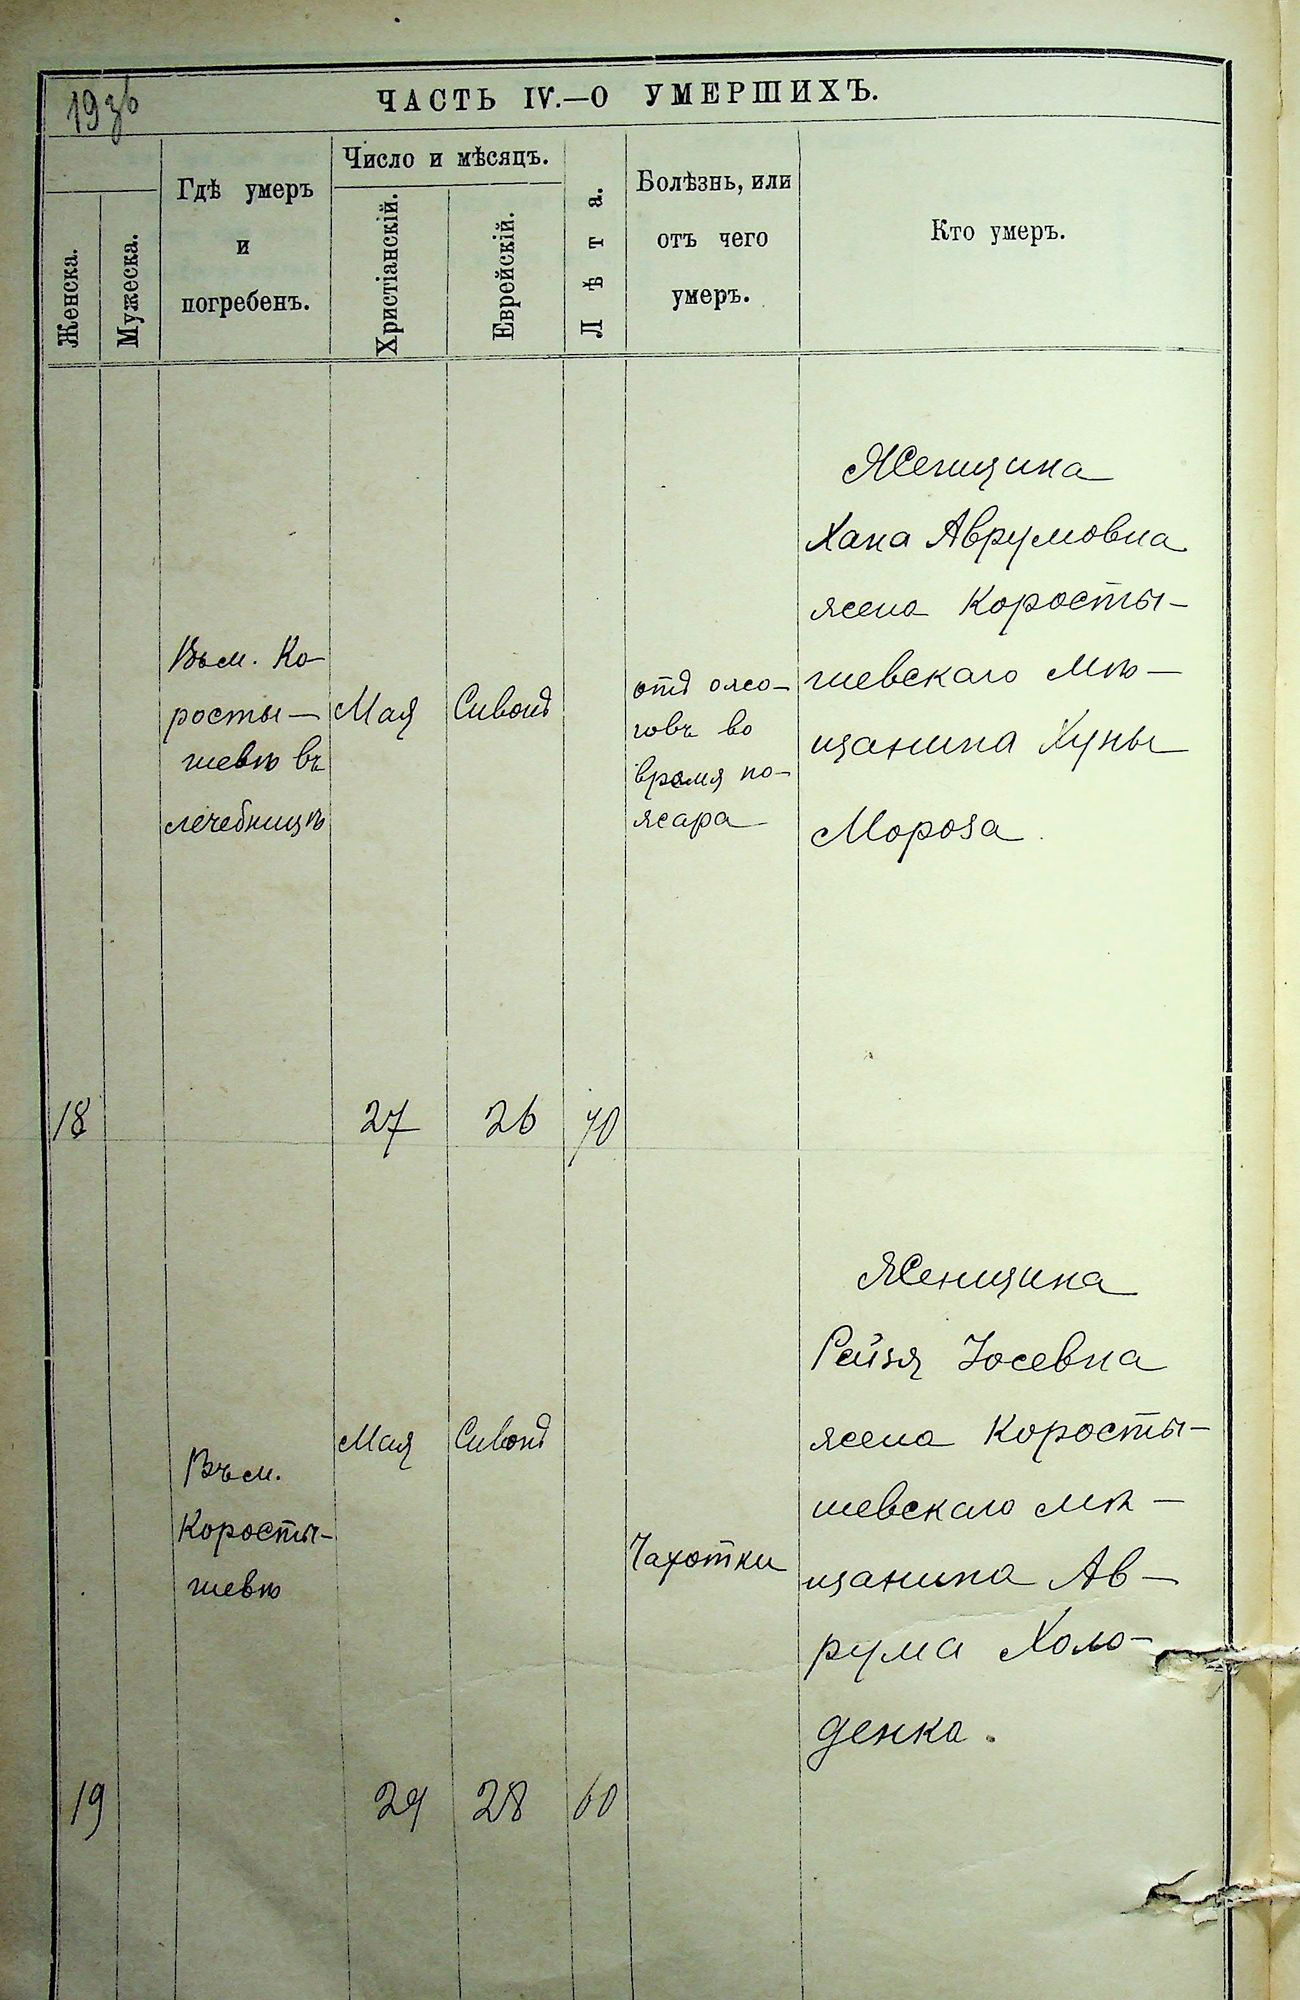 193б
ЧАСТЬ IV.—О УМЕРШИХЪ.
Женска.
Мужеска.
Гдѣ умеръ
и
погребенъ.
Число и мѣсяцъ.
Христіанскій.
Еврейскій.
Лѣта.
Болѣзнь, или
отъ чего
умеръ.
Кто умеръ.
18
Въ м. Ко-
росты-
шевѣ въ
лечебницѣ
Мая
27
Сивонд
26
70
отъ ожо-
говъ во
время по-
жара
Женщина
Хана Аврумовна
жена Коросты-
шевскаго мѣ-
щанина Хуны
Мороза
19
Въ м.
Коросты-
шевѣ
Мая
29
Сивонд
28
60
Чахотки
Женщина
Рейзя Іосевна
жена Коросты-
шевскаго мѣ-
щанина Ав-
рума Холо-
денка.